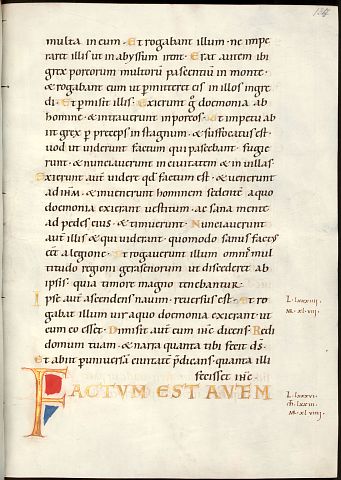 134
multa in eum · Et rogabant illum · ne impe
raret illis ut in abyssum irent · Erat autem ibi
grex porcorum multorū pascentiū in monte ·
& rogabant eum ut pmitteret eis in illos ingre
di · Et pmisit illis · Exierunt g daemonia ab
homine · & intrauerunt in porcos · Et impetu ab
iit grex p preceps in stagnum · & suffocatus est ·
uod ut uiderunt factum qui pascebant · fuge
runt · & nuntiauerunt in ciuitatem & in uillas ·
Exierunt aut uidere qd factum est · & uenerunt
ad ihm · & inuenerunt hominem sedentē a quo
daemonia exierant uestitum · ac sana mente
ad pedes eius · & timuerunt · Nuntiauerunt
aut illis & qui uiderant · quomodo sanus fact
eet a legione · Et rogauerunt illum omnis mul
titudo regionis gerasenorum ut discederet ab
ipsis · quia timore magno tenebantur ·
Ipse aut ascendens nauim · reuersus est · Et ro
gabat illum uir a quo daemonia exierant ut
cum eo esset · Dimisit aut eum ihc dicens · Redi
domum tuam · & narra quanta tibi fecit ds ·
Et abiit p uniuersā ciuitatē pdicans · quanta illi
fecisset ihc ·
FACTUM EST AVTEM
L · lxxxiiii ·
M · xl · viii ·
L · lxxxvi ·
M · xl · viiii ·